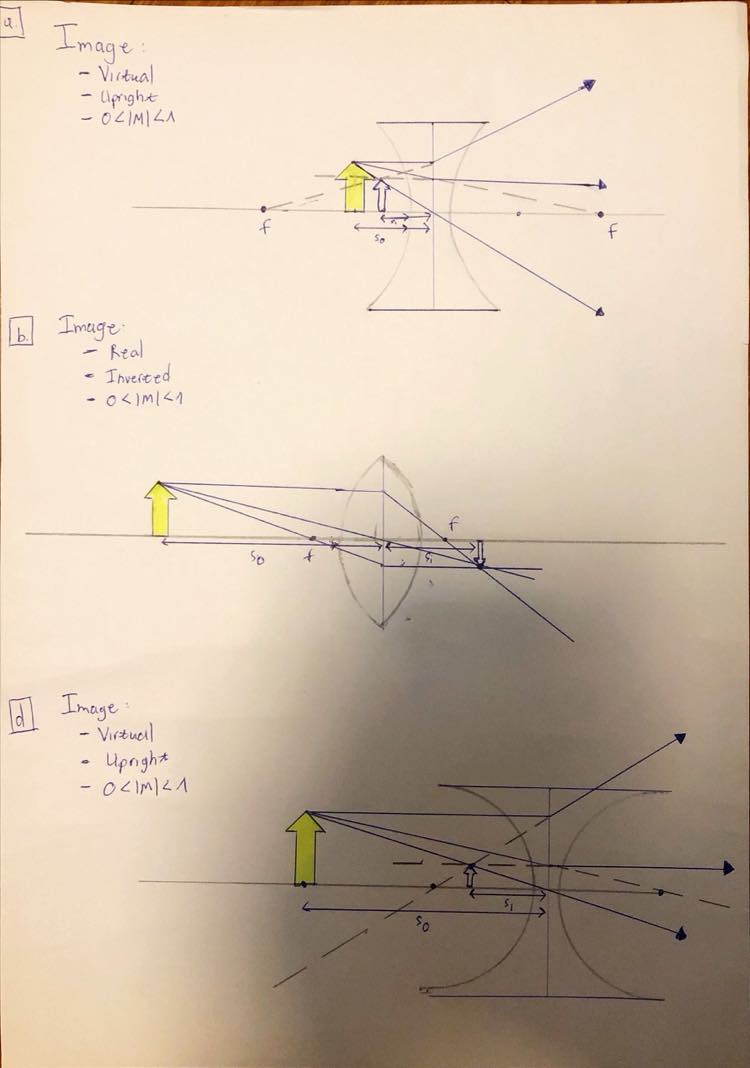 a.
Image:
- Virtual
- Upright
- 0<|M|<1
f
s₀
f
b.
Image:
- Real
- Inverted
- 0<|M|<1
f
s₀
f
s₁
d
Image:
- Virtual
- Upright
- 0<|M|<1
s₁
s₀